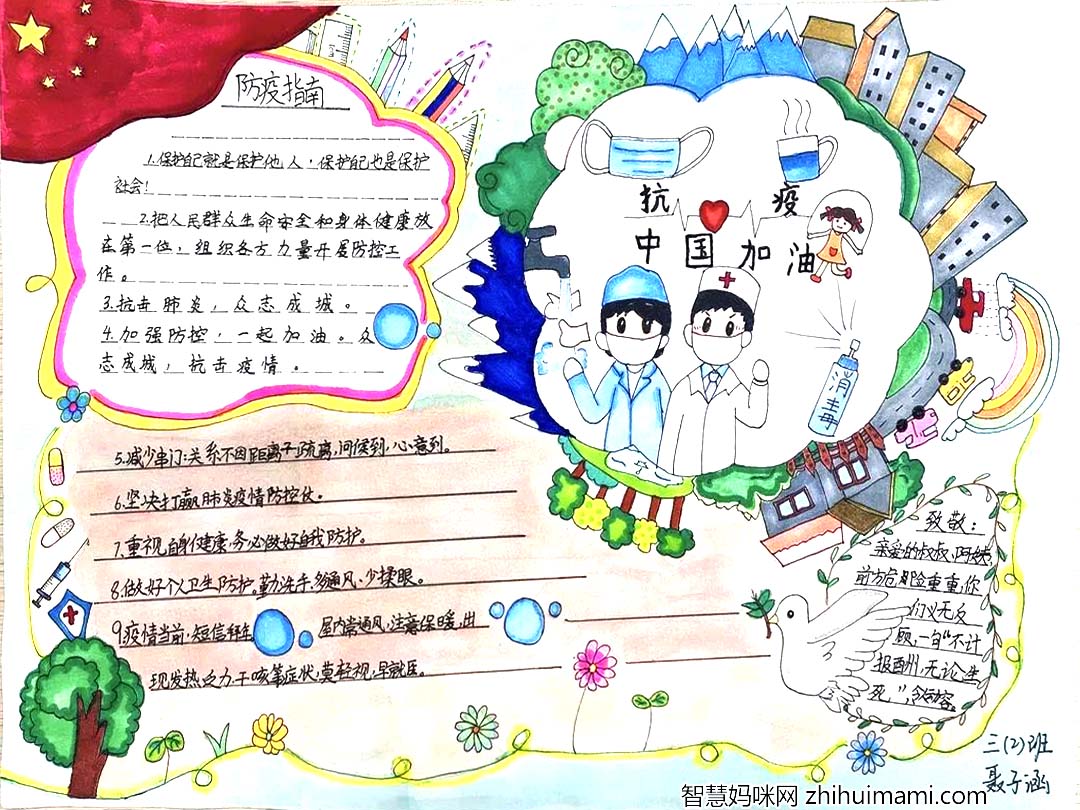 防疫指南
1.保护自己就是保护他人，保护自己也是保护
社会！
2.把人民群众生命安全和身体健康放
在第一位，组织各方力量开展防控工
作。
3.抗击肺炎，众志成城。
4.加强防控，一起加油。众
志成城，抗击疫情。
5.减少串门:关系不因距离而疏离,问候到,心意到。
6.坚决打赢肺炎疫情防控仗。
7.重视自身健康,务必做好自我防护。
8.做好个人卫生防护。勤洗手,多通风、少揉眼。
9.疫情当前,短信拜年 屋内常通风,注意保暖,出
现发热乏力,干咳等症状,莫轻视,早就医。
抗 疫
中国加油
消毒
致敬:
亲爱的叔叔,阿姨,
前方危险重重,你
们义无反
顾,一句“不计
报酬,无论生
死,”令动容。
三(2)班
聂子涵
智慧妈咪网 zhihuimami.com